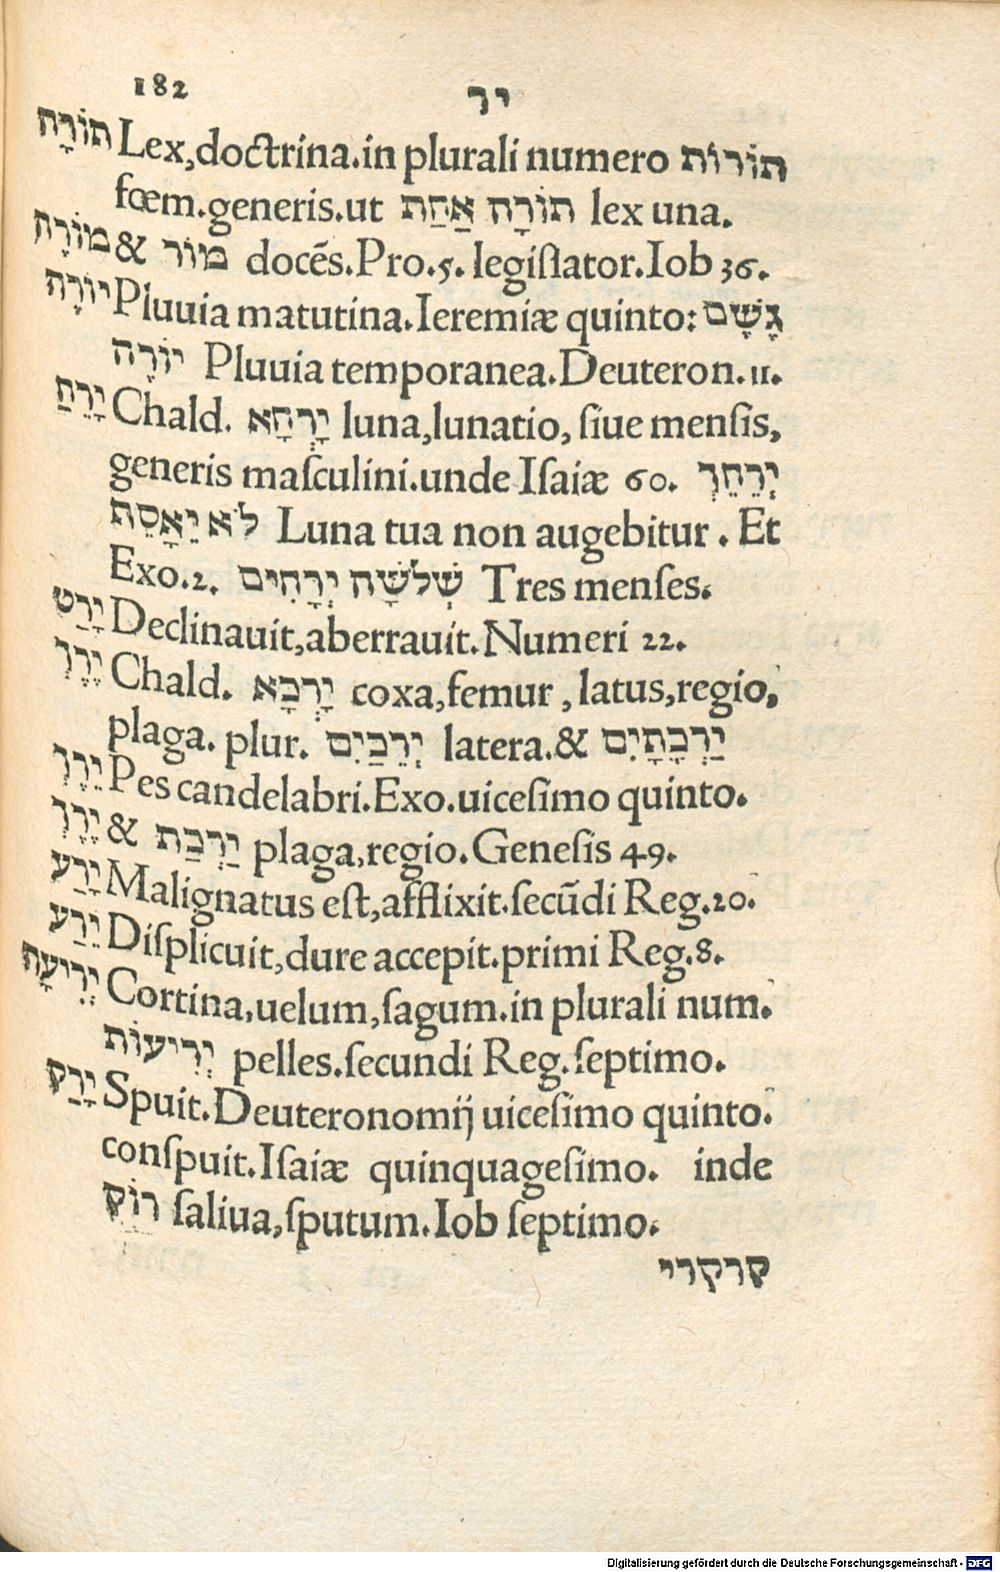 182 יר
תוֹרָה Lex,doctrina.in plurali numero תוֹרוֹת
fœm.generis.ut תוֹרָה אַחַת lex una.
מוֹרֶה & מוֹר docēs.Pro.5.legiſlator.Iob 36.
יוֹרֶה Pluuia matutina.Ieremiæ quinto: גֶּשֶׁם
יוֹרֶה Pluuia temporanea.Deuteron.11.
יָרֵחַ Chald. יָרְחָא luna,lunatio, ſiue menſis,
generis maſculini.unde Iſaiæ 60. יְרֵחֵךְ
לֹא יֵאָסֵף Luna tua non augebitur. Et
Exo.2. שְׁלֹשָׁה יְרָחִים Tres menſes.
יָרַט Declinauit,aberrauit.Numeri 22.
יָרֵךְ Chald. יָרְכָא coxa,femur, latus,regio,
plaga. plur. יְרֵכַיִם latera.& יַרְכָתָיִם
יָרֵךְ Pes candelabri.Exo.uiceſimo quinto.
יָרֵךְ & יַרְכַת plaga,regio.Geneſis 49.
יָרַע Malignatus eſt,afflixit.ſecūdi Reg.20.
יֵרַע Diſplicuit,dure accepit.primi Reg.8.
יְרִיעָה Cortina,uelum,ſagum.in plurali num.
יְרִיעוֹת pelles.ſecundi Reg.ſeptimo.
יָרַק Spuit.Deuteronomij uiceſimo quinto.
conſpuit.Iſaiæ quinquageſimo. inde
רוֹק ſaliua,ſputum.Iob ſeptimo.
קרקרי
Digitalisierung gefördert durch die Deutsche Forschungsgemeinschaft - DFG